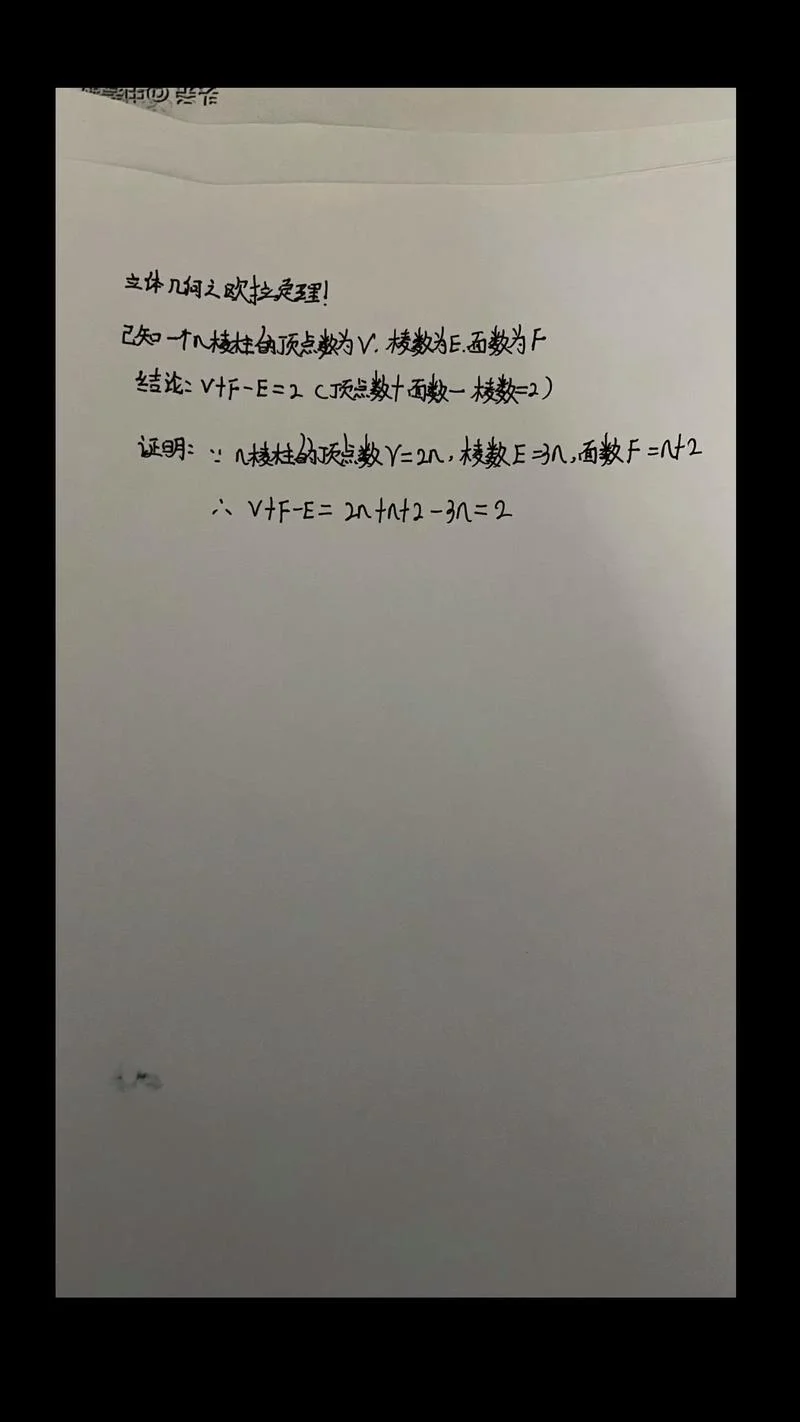 立体几何之欧拉定理!
已知一个n棱柱的顶点数为V.棱数为E.面数为F
结论:V+F-E=2(顶点数+面数-棱数=2)
证明:∵n棱柱的顶点数V=2n,棱数E=3n,面数F=n+2
∴V+F-E=2n+n+2-3n=2